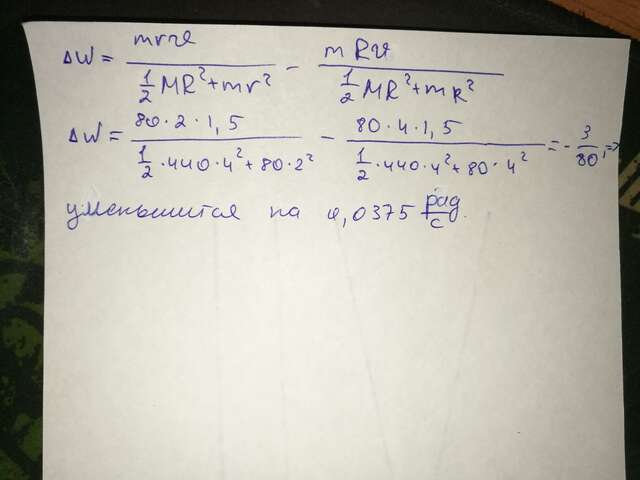 ΔW = mrv / (1/2 MR² + mr²) − mRv / (1/2 MR² + mR²)
ΔW = 80·2·1,5 / (1/2·440·4² + 80·2²) − 80·4·1,5 / (1/2·440·4² + 80·4²) = − 3/80, =>
уменьшится на 0,0375 рад/с.